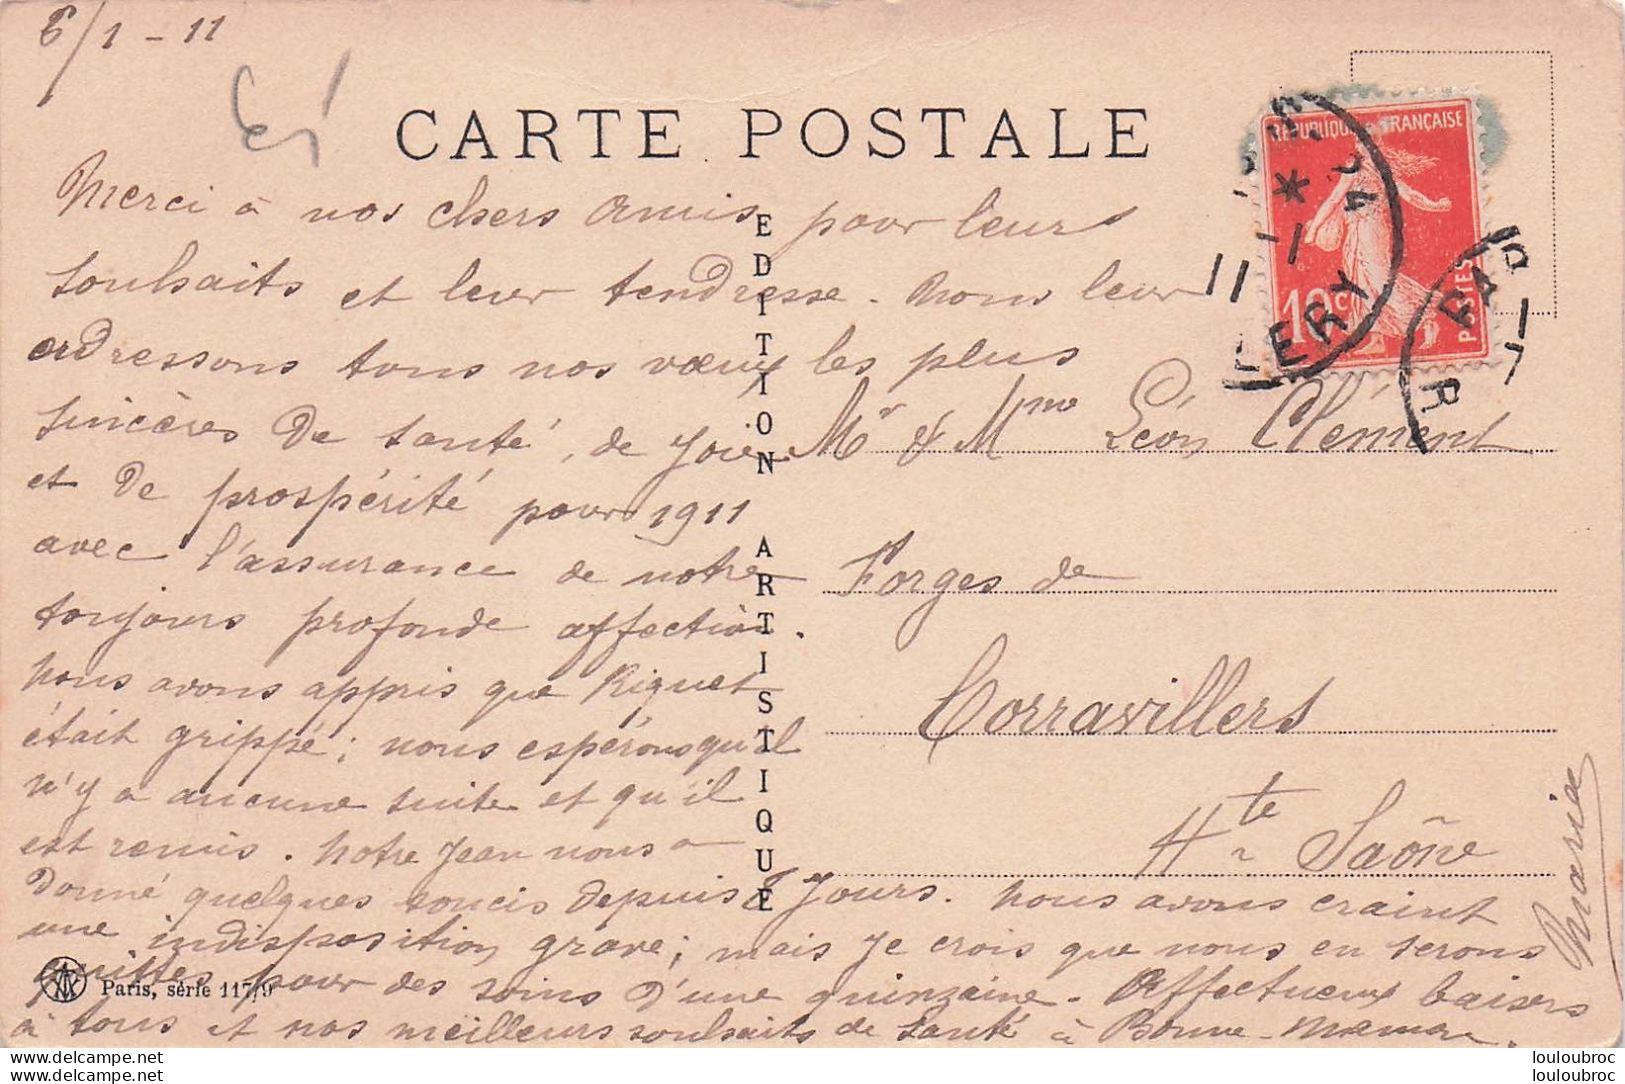 6/1-11
CARTE POSTALE
RÉPUBLIQUE FRANÇAISE
10c
POSTES
Merci à nos chers amis pour leurs
souhaits et leur tendresse. Nous leur
adressons tous nos vœux les plus
sincères de santé, de joie
et de prospérité pour 1911
avec l'assurance de notre
toujours profonde affection.
Nous avons appris que Riquet
était grippé; nous espérons qu'il
n'y a aucune suite et qu'il
est remis. Notre Jean nous a
donné quelques soucis depuis 8 jours. Nous avons craint
une indisposition grave; mais je crois que nous en serons
quittes pour des soins d'une quinzaine. Affectueux baisers
à tous et nos meilleurs souhaits de santé à Bonne-Maman.
Marie
EDITION ARTISTIQUE
Mr & Mme Léon Clément
Forges de
Corravillers
Hte Saône
Paris, série 117/9
www.delcampe.net
louloubroc
www.delcampe.net
louloubroc